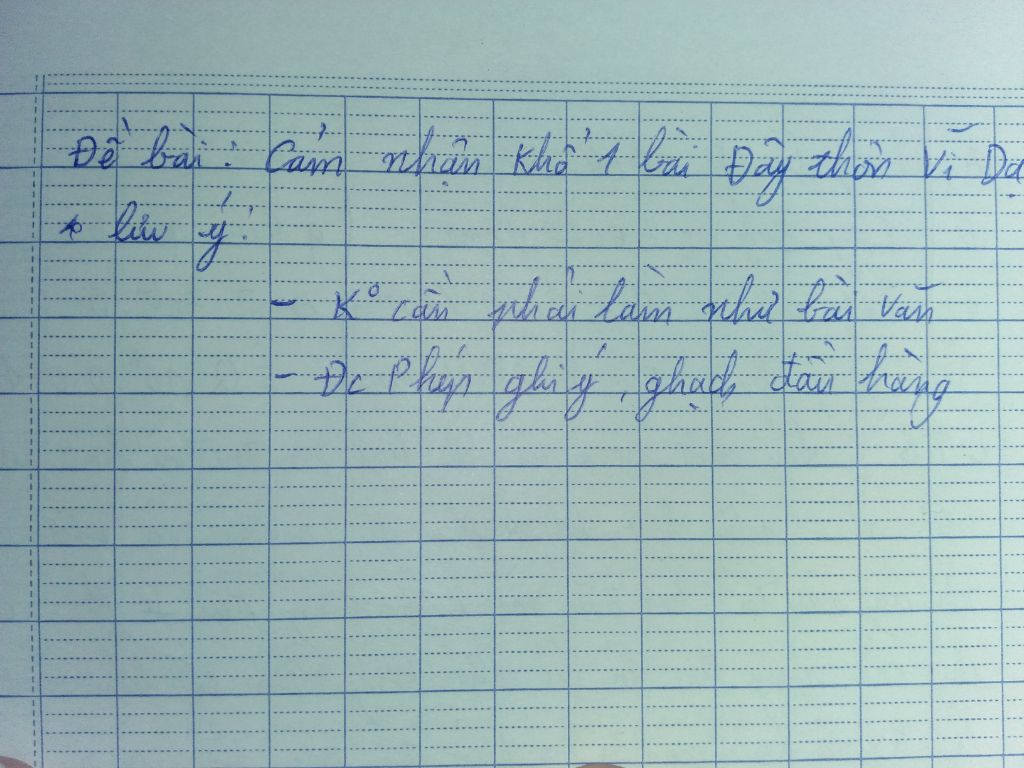 Đề bài: Cảm nhận khổ 1 bài Đây thôn Vĩ Dạ
* lưu ý:
- K° cần phải làm như bài văn
- Đc Phép ghi ý, ghạch đầu hàng